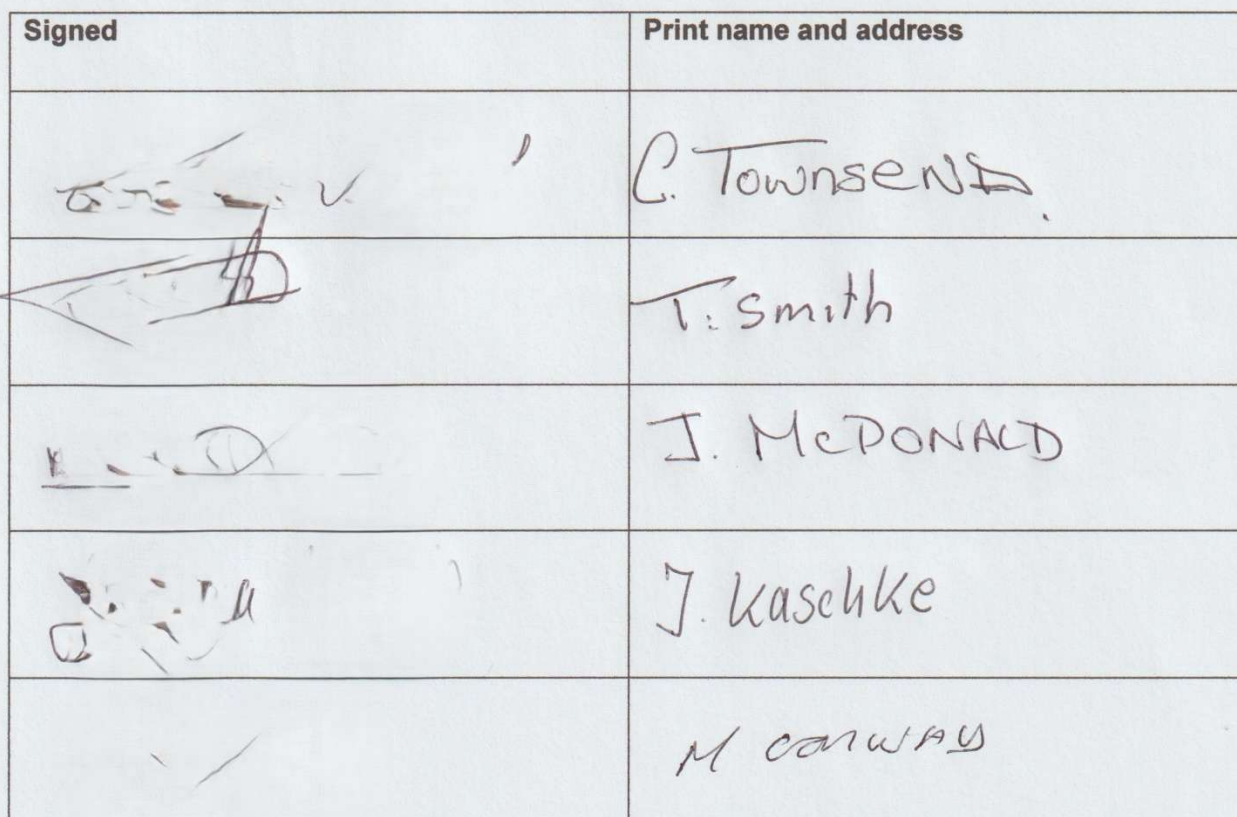 Signed Print name and address
C. Townsend.
T. Smith
J. McDONALD
J. Kaschke
M CONWAY